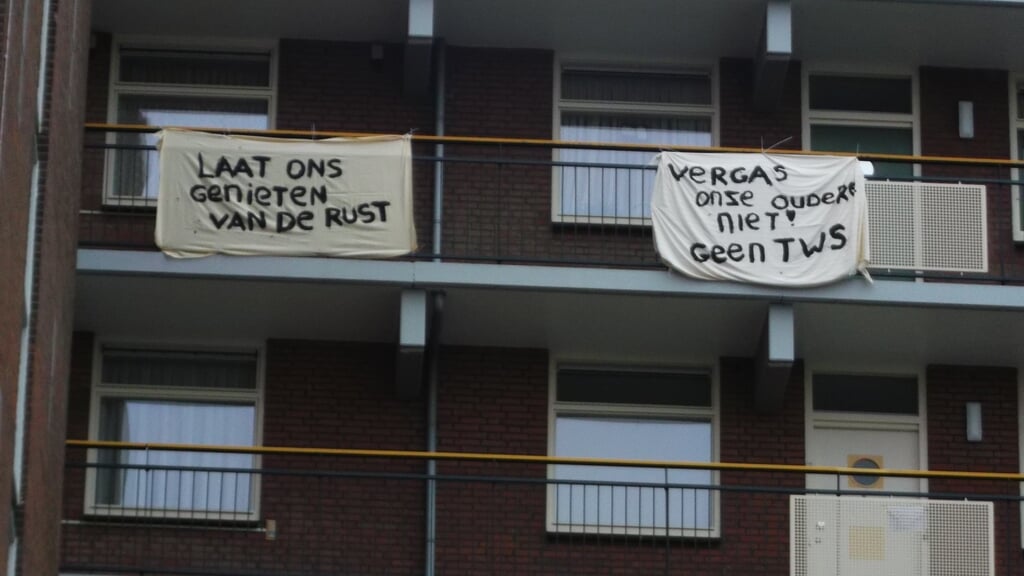 LAAT ONS
GENIETEN
VAN DE RUST
VERGAS
ONZE OUDEREN
NIET!
GEEN TWS